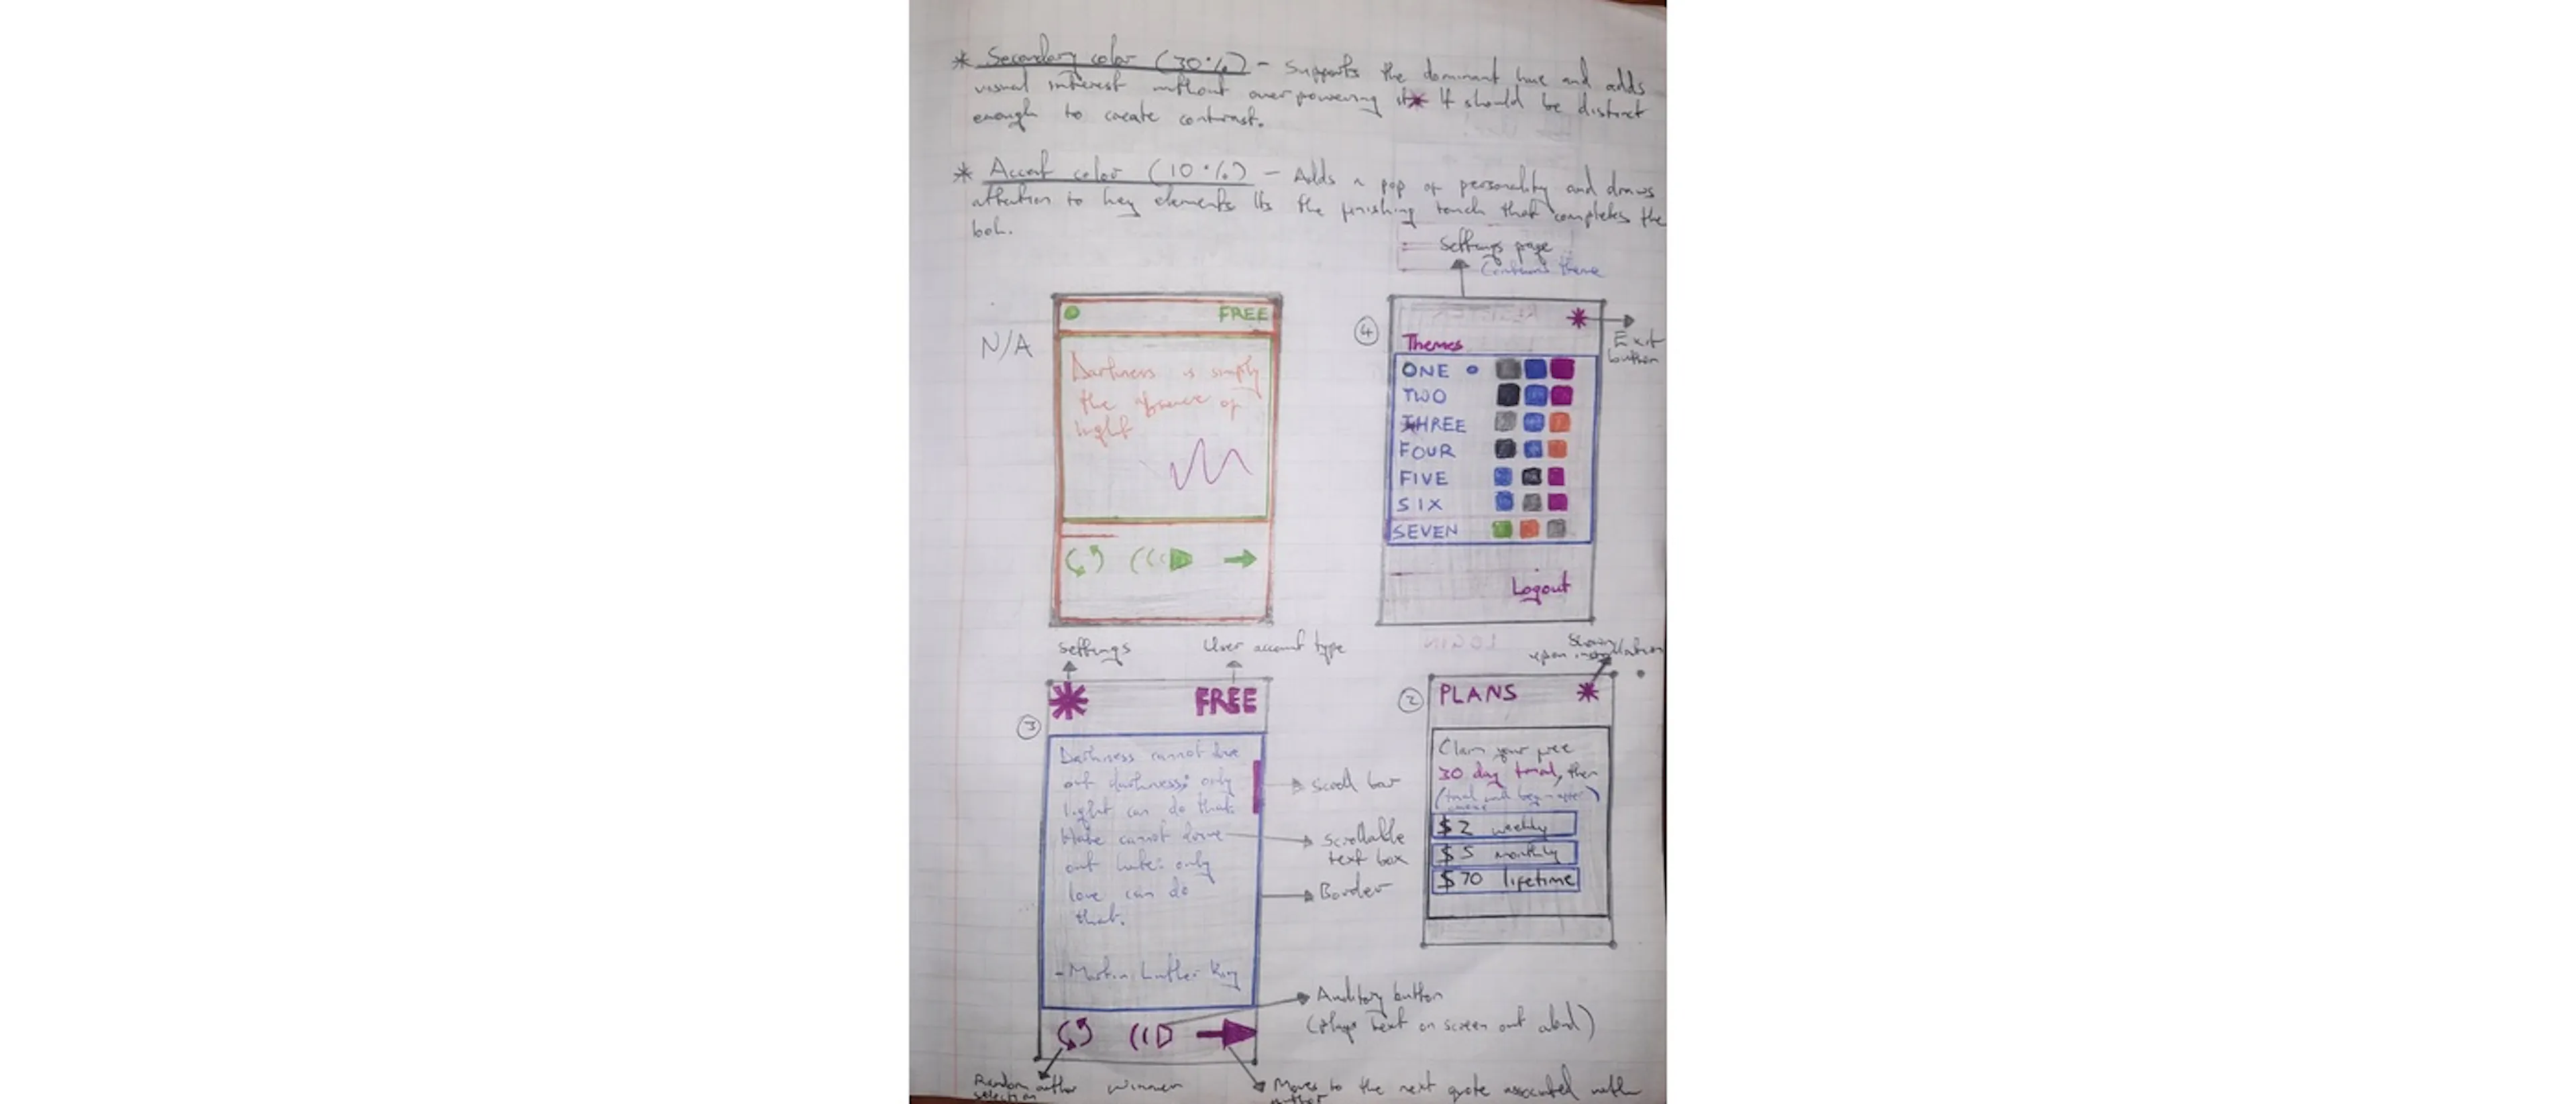 * Secondary color (30%) - Supports the dominant hue and adds
visual interest without overpowering it* It should be distinct
enough to create contrast.
* Accent color (10%) - Adds a pop of personality and draws
attention to key elements Its the finishing touch that completes the
Settings page
Contains theme
N/A
FREE
Darkness is simply
the absence of
light
4
Exit
button
Themes
ONE
TWO
THREE
FOUR
FIVE
SIX
SEVEN
Logout
LOGIN
Settings
User account type
Shown
upon installation
3
FREE
Darkness cannot drive
out darkness; only
light can do that.
Hate cannot drive
out hate: only
love can do
that.
- Martin Luther King
Scroll bar
Scrollable
text box
Border
2
PLANS
Claim your free
30 day trial, then
(trial will begin after
$2 weekly
$5 monthly
$70 lifetime
Auditory button
(plays text on screen out aloud)
Random author
selection
winner
Moves to the next quote associated with
author